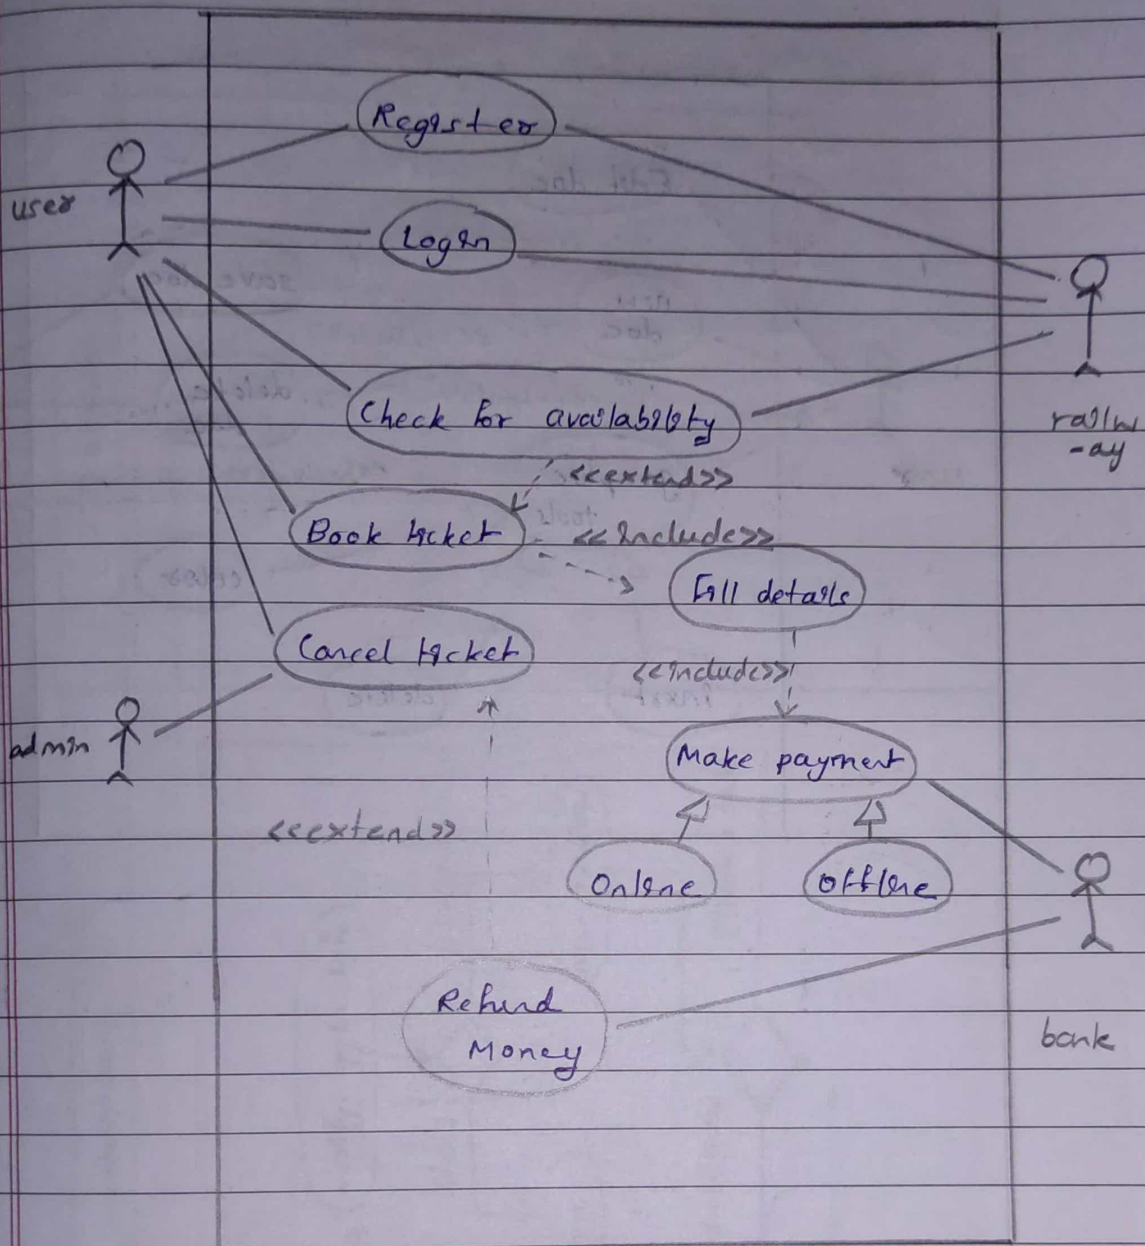 Register
user
Login
Check for availability
railw
-ay
<<extend>>
Book ticket
<<include>>
Fill details
Cancel ticket
<<include>>
admin
Make payment
<<extend>>
Online
Offline
Refund
Money
bank